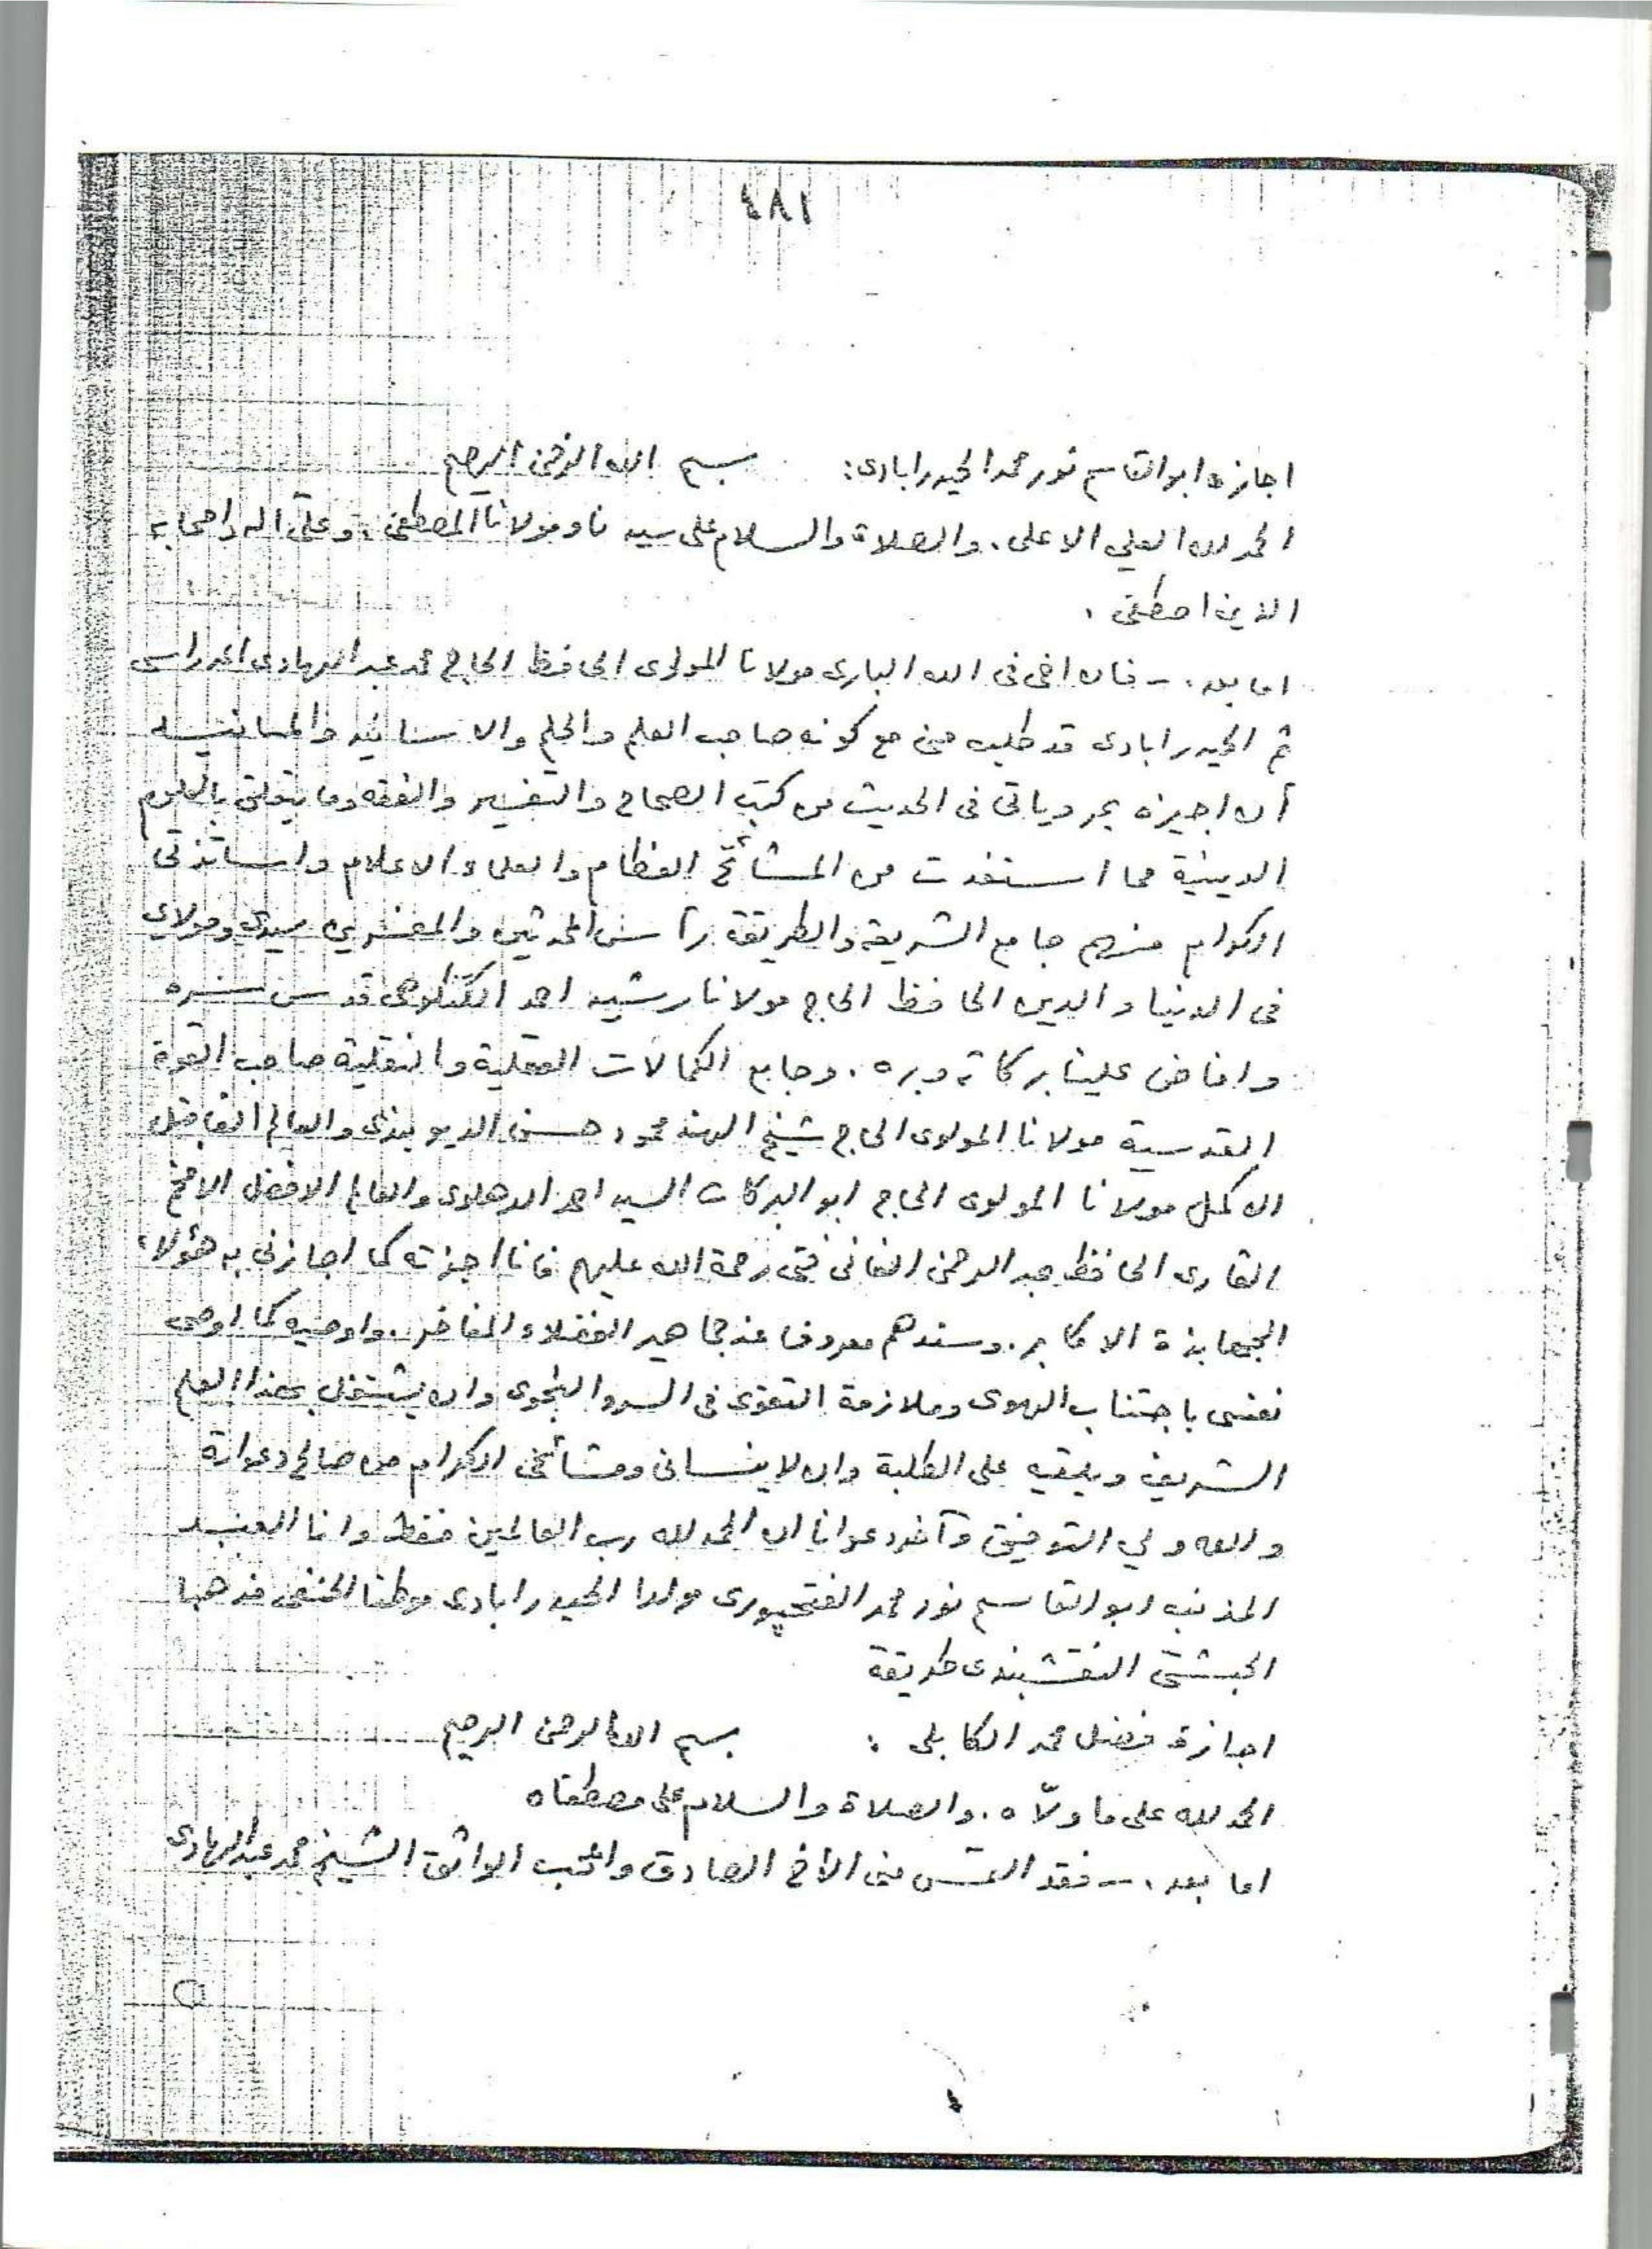 ١٨١
اجازه ابو القاسم نور محمد الحيدرابادى : بسم الله الرحمن الرحيم
الحمد لله العلي الاعلى . والصلاة والسلام على سيدنا ومولانا المصطفى . وعلى اله واصحابه
الذين اصطفى .
اما بعد . - فان اخى فى الله البارى مولانا المولوى الحافظ الحاج محمد عبد الهادى المدراسى
ثم الحيدرابادى قد طلب منى مع كونه صاحب العلم والحلم والاسانيد والمسانيد
أن اجيزه بمروياتى فى الحديث من كتب الصحاح والتفسير والفقه وما يتعلق بالعلوم
الدينية مما استفدت من المشائخ العظام والعلماء الاعلام واساتذتى
الكرام منهم جامع الشريعة والطريقة رأس المحدثين والمفسرين سيدى ومولاي
فى الدنيا والدين الحافظ الحاج مولانا رشيد احمد الكنكوهى قدس سره
وافاض علينا بركاته وبره . وجامع الكمالات العقلية والنقلية صاحب القوة
القدسية مولانا المولوى الحاج شيخ الهند محمود حسن الديوبندى والعالم الفاضل
الاكمل مولانا المولوى الحاج ابو البركات السيد احمد الدهلوى والعالم الافضل الافخم
القارى الحافظ عبد الرحمن الفانى فتى رحمة الله عليهم فانا اجزته كما اجازنى به هؤلاء
الجهابذة الاكابر . وسندهم معروف عند جماهير الفضلاء المفاخر . واوصيه كما اوصى
نفسى باجتناب الهوى وملازمة التقوى فى السر والنجوى وان يشتغل بهذا العلم
الشريف ويلقيه على الطلبة وان لا ينسانى ومشائخى الكرام من صالح دعواته
والله ولي التوفيق وآخر دعوانا ان الحمد لله رب العالمين فقط وانا العبد
المذنب ابو القاسم نور محمد الفتحپورى مولدا الحيدرابادى موطنا الحنفى مذهبا
الجشتى النقشبندى طريقة
اجازة فضل محمد الكابلى : بسم الله الرحمن الرحيم
الحمد لله على ما ولّاه . والصلاة والسلام على مصطفاه
اما بعد . - فقد التمس منى الأخ الصادق والمحب الواثق الشيخ محمد عبد الهادى